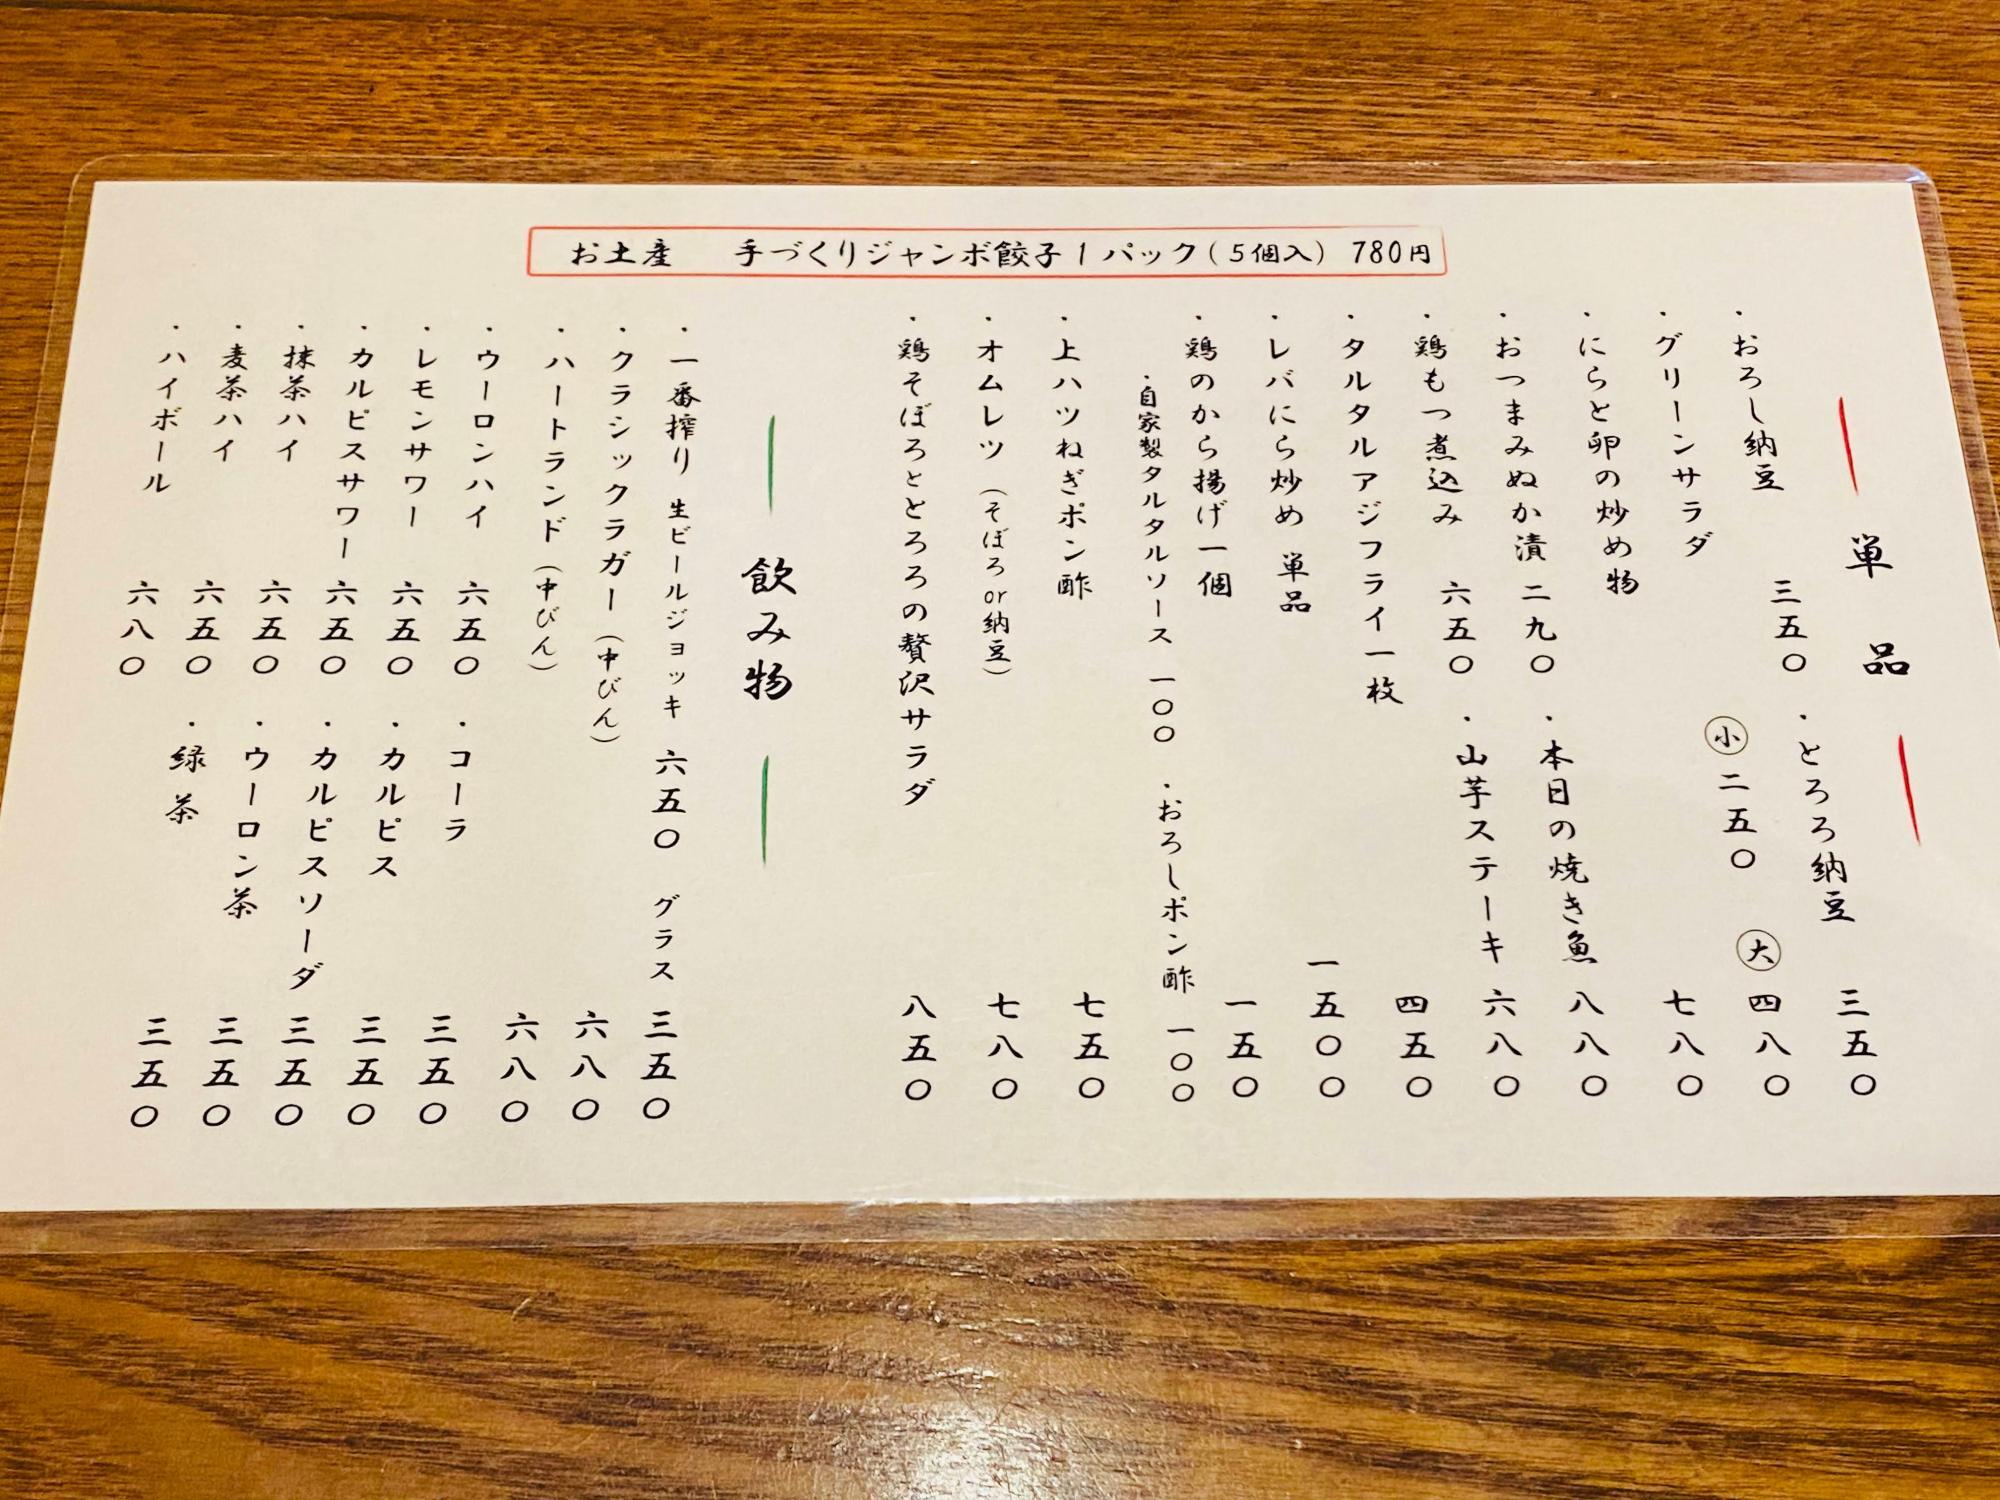 お土産 手づくりジャンボ餃子1パック(5個入) 780円
単品
・おろし納豆 三五〇 ・とろろ納豆 三五〇
・グリーンサラダ 小 二五〇 大 四八〇
・にらと卵の炒め物 七八〇
・おつまみぬか漬 二九〇 ・本日の焼き魚 八八〇
・鶏もつ煮込み 六五〇 ・山芋ステーキ 六八〇
・タルタルアジフライ一枚 四五〇
・レバにら炒め 単品 一五〇〇
・鶏のから揚げ一個 一五〇
・自家製タルタルソース 一〇〇 ・おろしポン酢 一〇〇
・上ハツねぎポン酢 七五〇
・オムレツ (そぼろor納豆) 七八〇
・鶏そぼろととろろの贅沢サラダ 八五〇
飲み物
・一番搾り 生ビールジョッキ 六五〇 グラス 三五〇
・クラシックラガー(中びん) 六八〇
・ハートランド(中びん) 六八〇
・ウーロンハイ 六五〇 ・コーラ 三五〇
・レモンサワー 六五〇 ・カルピス 三五〇
・カルピスサワー 六五〇 ・カルピスソーダ 三五〇
・抹茶ハイ 六五〇 ・ウーロン茶 三五〇
・麦茶ハイ 六五〇 ・緑茶 三五〇
・ハイボール 六八〇